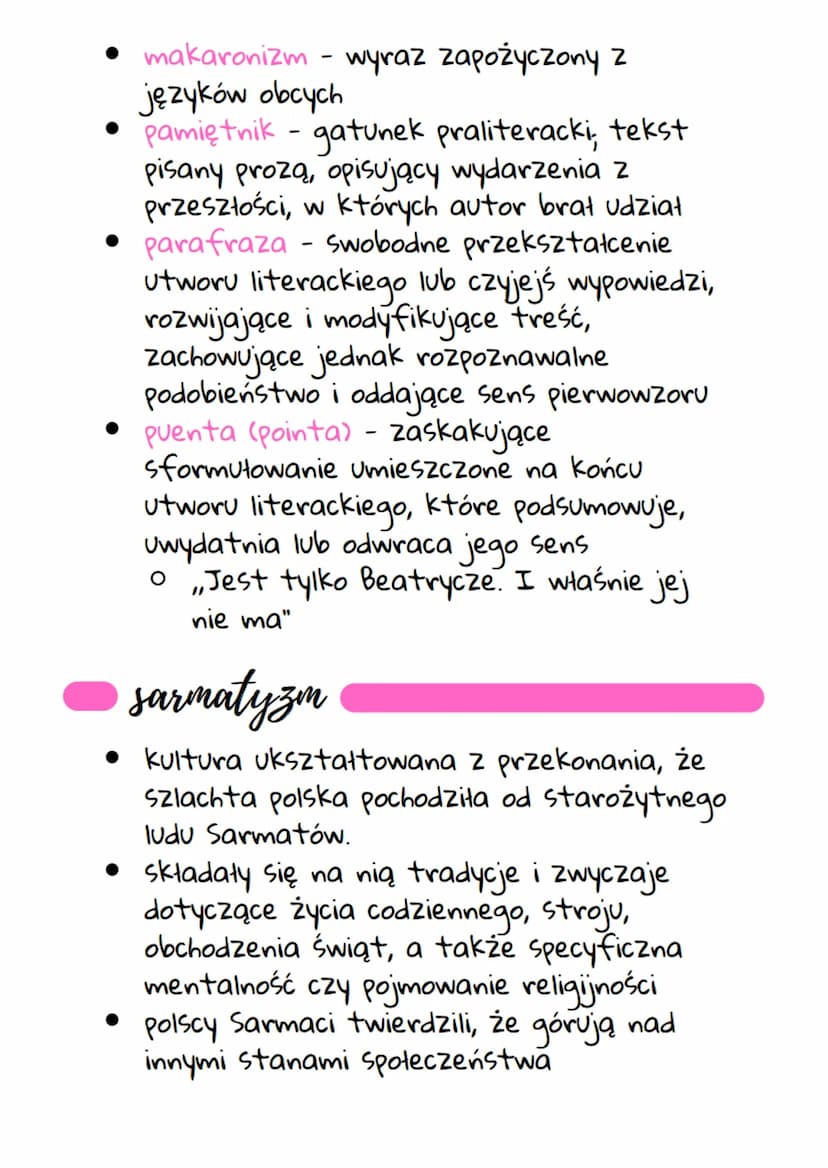 • makaronizm - wyraz zapożyczony z
języków obcych
• pamiętnik - gatunek praliteracki; tekst
pisany prozą, opisujący wydarzenia z
przeszłości, w których autor brał udział
• parafraza - swobodne przekształcenie
utworu literackiego lub czyjejś wypowiedzi,
rozwijające i modyfikujące treść,
zachowujące jednak rozpoznawalne
podobieństwo i oddające sens pierwowzoru
• puenta (pointa) - zaskakujące
sformułowanie umieszczone na końcu
utworu literackiego, które podsumowuje,
uwydatnia lub odwraca jego sens
○ „Jest tylko Beatrycze. I właśnie jej
nie ma"
sarmatyzm
• kultura ukształtowana z przekonania, że
szlachta polska pochodziła od starożytnego
ludu Sarmatów.
• składały się na nią tradycje i zwyczaje
dotyczące życia codziennego, stroju,
obchodzenia świąt, a także specyficzna
mentalność czy pojmowanie religijności
• polscy Sarmaci twierdzili, że górują nad
innymi stanami społeczeństwa